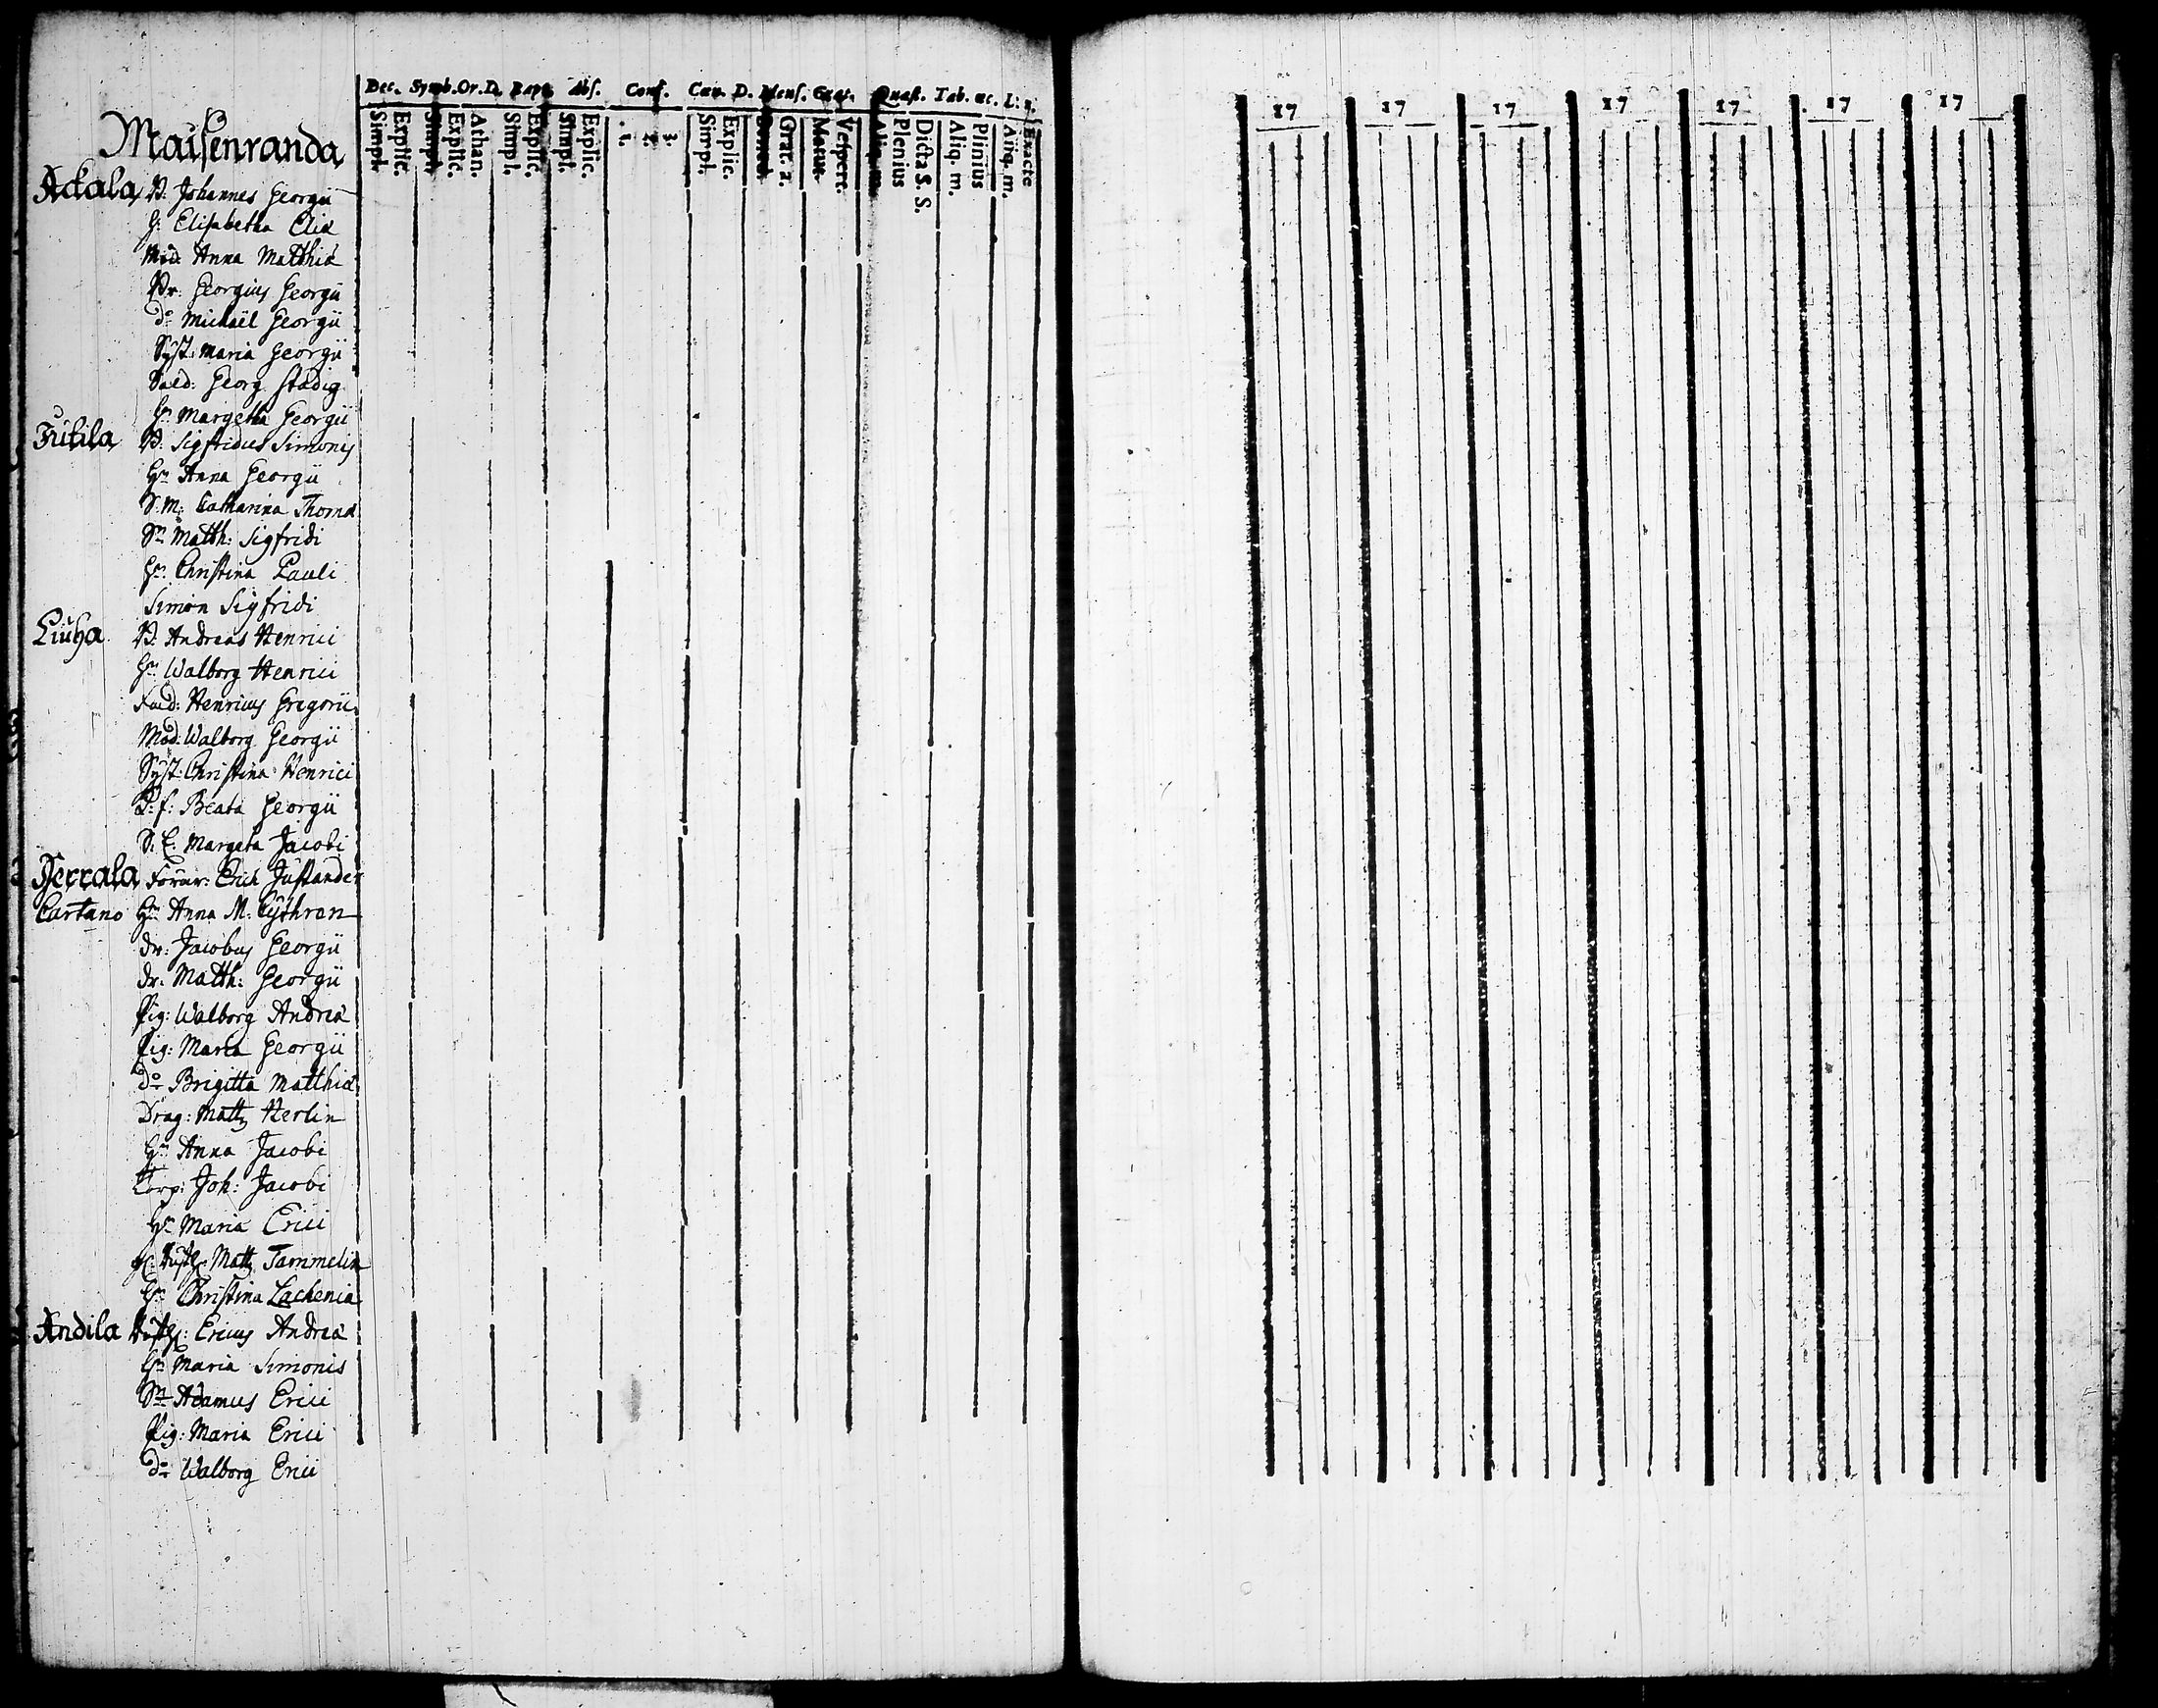 Dec. Symb. Or. D. Bapt. Abs. Conf. Cœn. D. Mens. Grat. Quæst. Tab. œc. L: n.
Simpl. Explic. Simpl. Explic. Athan. Simpl. Explic. Simpl. Explic. 1. 2. 3. Simpl. Explic. Grat. a. Matut. Vespert. Aliq. m. Plenius Dicta S. S. Aliq. m. Plinius Aliq. m. Exacte
17 17 17 17 17 17 17
Maisenranda
Ackala V. Johannes Georgii
H: Elisabetha Eliæ
Mod: Anna Matthiæ
Dr: Georgius Georgii
do Michaël Georgii
Syst: Maria Georgii
Sold: Georg Stadig
Hu Margetha Georgii
Jutila V. Sigfridus Simonis
Hu Anna Georgii
S. M: Catharina Thomæ
Sn Matth: Sigfridi
Hu Christina Pauli
Simon Sigfridi
Liuha V. Andreas Henrici
Hu Walborg Henrici
Fad: Henricus Gregorii
Mod: Walborg Georgii
Syst: Christina Henrici
P: f: Beata Georgii
S. E. Margeta Jacobi
Jerrala Forar: Erich Justander
Cartano Hu Anna M. Cythron
dr: Jacobus Georgii
dr. Matth: Georgii
Pig: Walborg Andreæ
Pig: Maria Georgii
do Brigitta Matthiæ
Drag: Matts Herlin
Hu Anna Jacobi
Torp: Joh: Jacobi
Hu Maria Erici
Matts Tammelin
Hu Christina Lachenia
Andila Ericus Andreæ
Hu Maria Simonis
Sn Adamus Erici
Pig: Maria Erici
do Walborg Erici